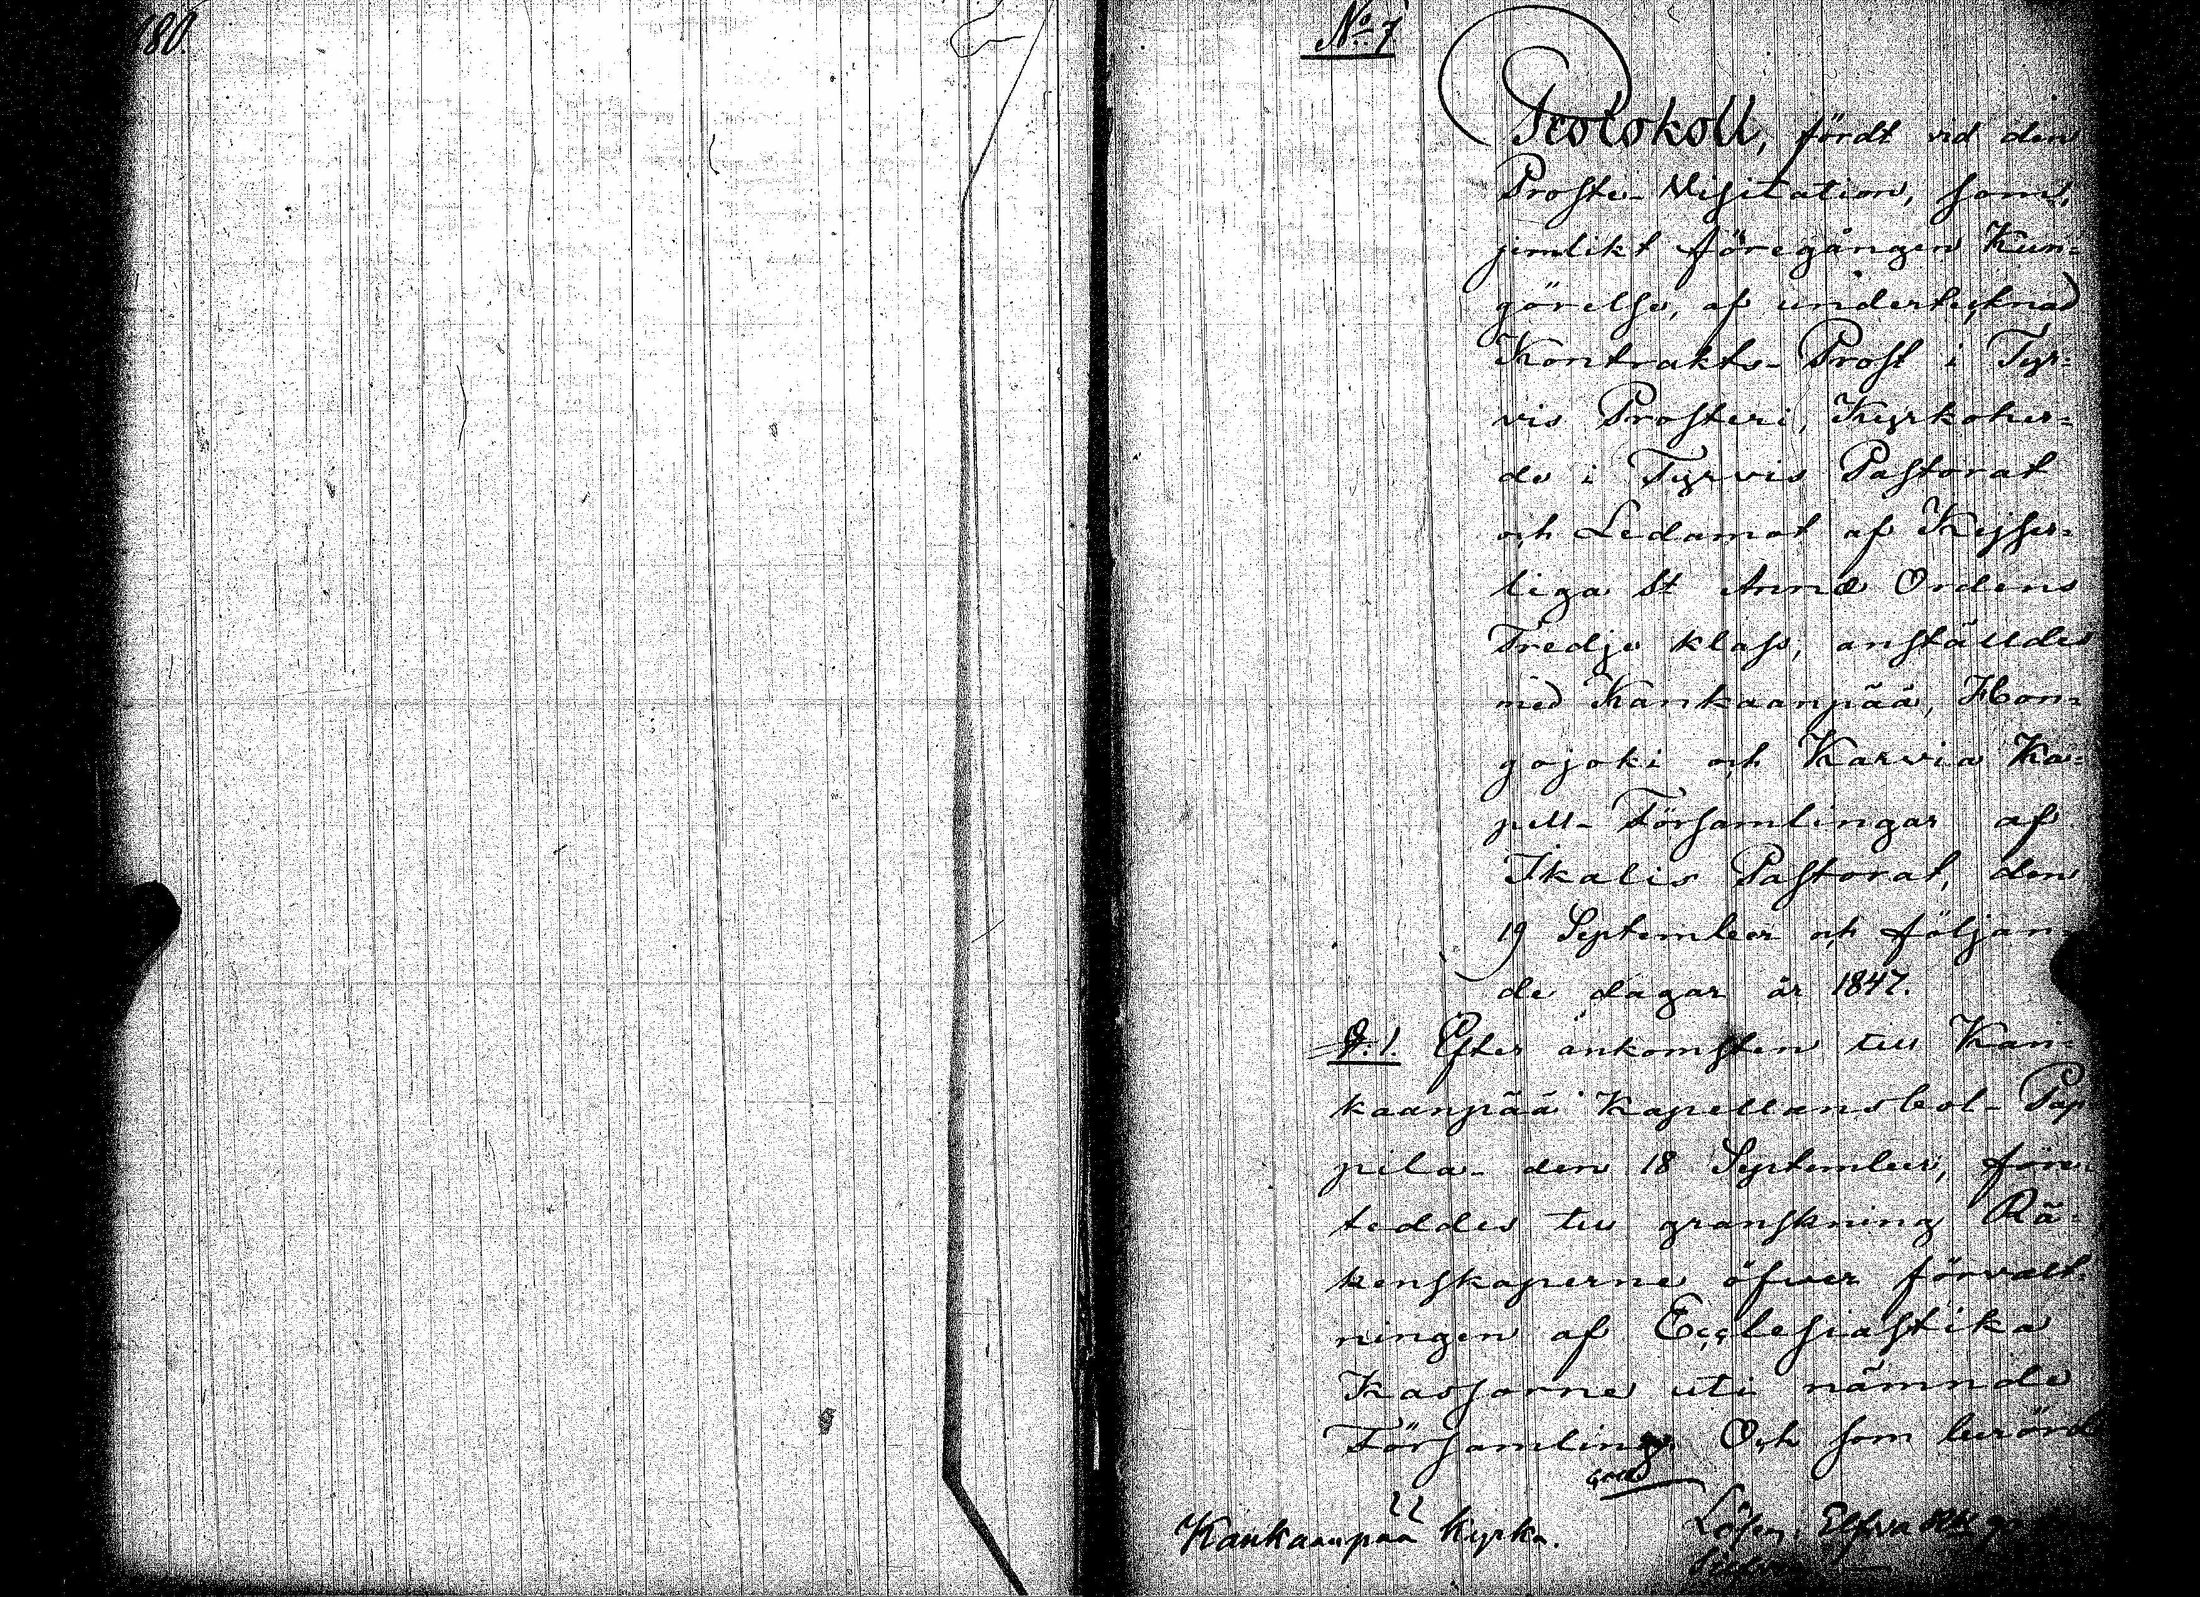 180.
No 7
Protokoll, fördt vid den
Proste-Visitation, som,
jemlikt föregången Kun-
görelse, af undertecknad
Kontrakts-Prost i Tyr-
vis Prosteri, Kyrkoher-
de i Tyrvis Pastorat
och Ledamot af Kejser-
liga St Annæ Ordens
Tredje klass, anställdes
med Kankaanpää, Hon-
gojoki och Karvia Ka-
pell-Församlingar af
Ikalis Pastorat, den
19 September och följan-
de dagar år 1847.
§. 1. Efter ankomsten till Kan-
kaanpää Kapellansbol-Pap
pila- den 18 September, före-
teddes till granskning Rä-
kenskaperne öfwer förvalt-
ningen af Ecclesiastika
Kassorne uti nämnde
Församling. Och som berörd
Kankaanpää Kyrka.
Lösen: